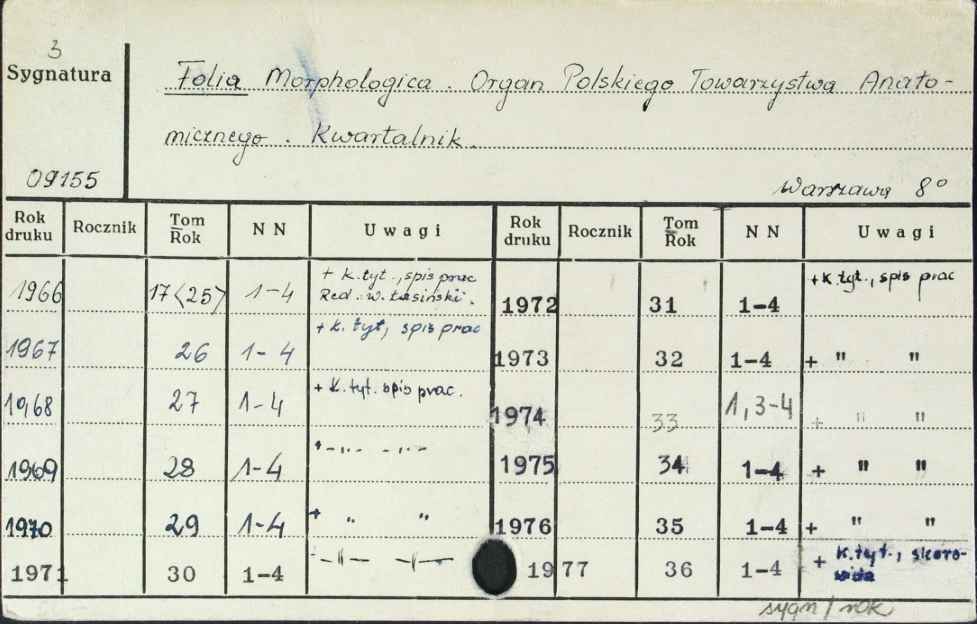 3
Sygnatura
Folia Morphologica. Organ Polskiego Towarzystwa Anato-
micznego. Kwartalnik.
09155
Warszawa 8°
Rok druku Rocznik Tom Rok N N Uwagi Rok druku Rocznik Tom Rok N N Uwagi
1966 17<25> 1-4 + k. tyt., spis prac
Red. w.
1972 31 1-4 + k. tyt., spis prac
1967 26 1-4 + k. tyt, spis prac
1973 32 1-4 + " "
1968 27 1-4 + k. tyt. spis prac.
1974 33 1, 3-4 + " "
1969 28 1-4 + -"- -"-
1975 34 1-4 + " "
1970 29 1-4 + " "
1976 35 1-4 + " "
1971 30 1-4 -"- -"-
1977 36 1-4 + k. tyt., skoro-
widz
sygn / rok